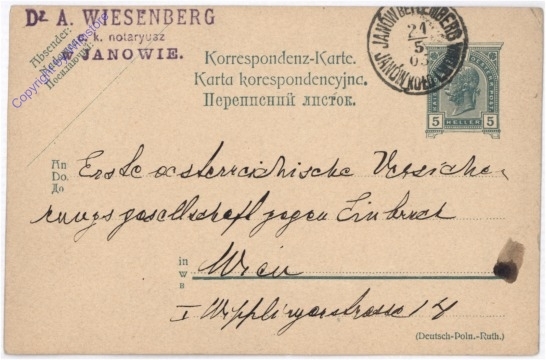 Dr. A. WIESENBERG
c. k. notaryusz
w JANOWIE.
Absender:
Korrespondenz-Karte.
Karta korespondencyjna.
Переписний листок.
JANÓW BEI LEMBERG
21
5
5 HELLER 5
An
Do.
До
Erste oesterreichische Versiche-
rungsgesellschaft gegen Einbruch
in
W
в
Wien
I Wipplingerstrasse 14
(Deutsch-Poln.-Ruth.)